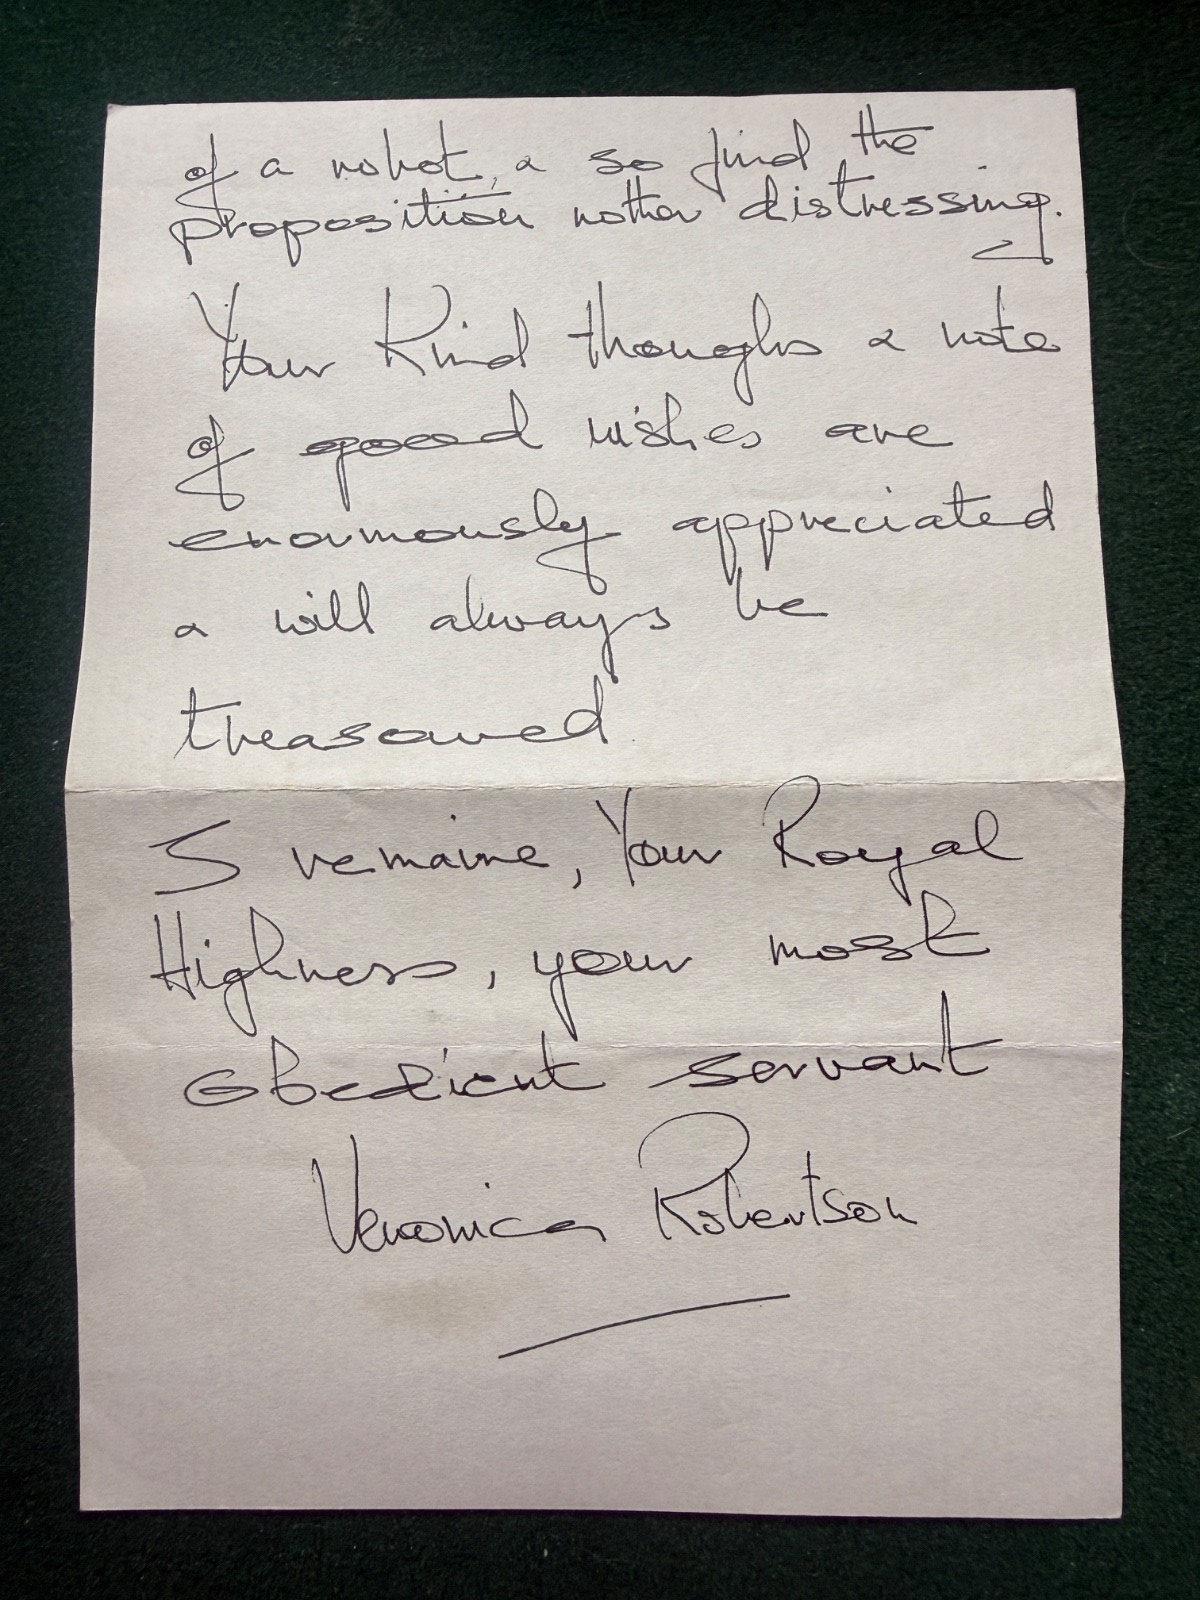 of a robot, & so find the
proposition rather distressing.
Your Kind thoughts & note
of good wishes are
enormously appreciated
& will always be
treasured.
I remaine, Your Royal
Highness, your most
obedient servant
Veronica Robertson